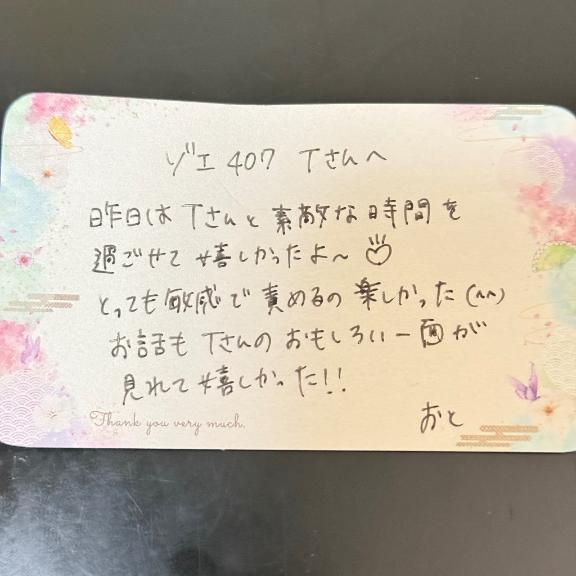 ゾエ 407 Tさんへ
昨日は Tさんと 素敵な時間を
過ごせて 嬉しかったよ〜♡
とっても敏感で 責めるの 楽しかった(^^)
お話も Tさんの おもしろい一面が
見れて 嬉しかった!!
おと
Thank you very much.